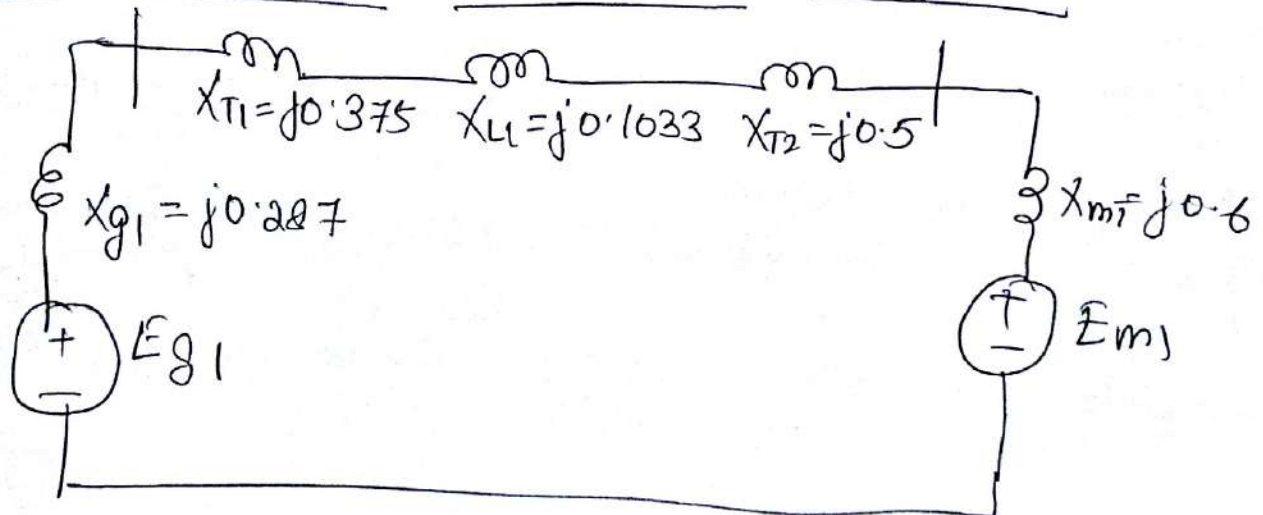 XT1=j0.375 XL1=j0.1033 XT2=j0.5
Xg1=j0.287
Xm1=j0.6
+
Eg1
-
+
Em1
-